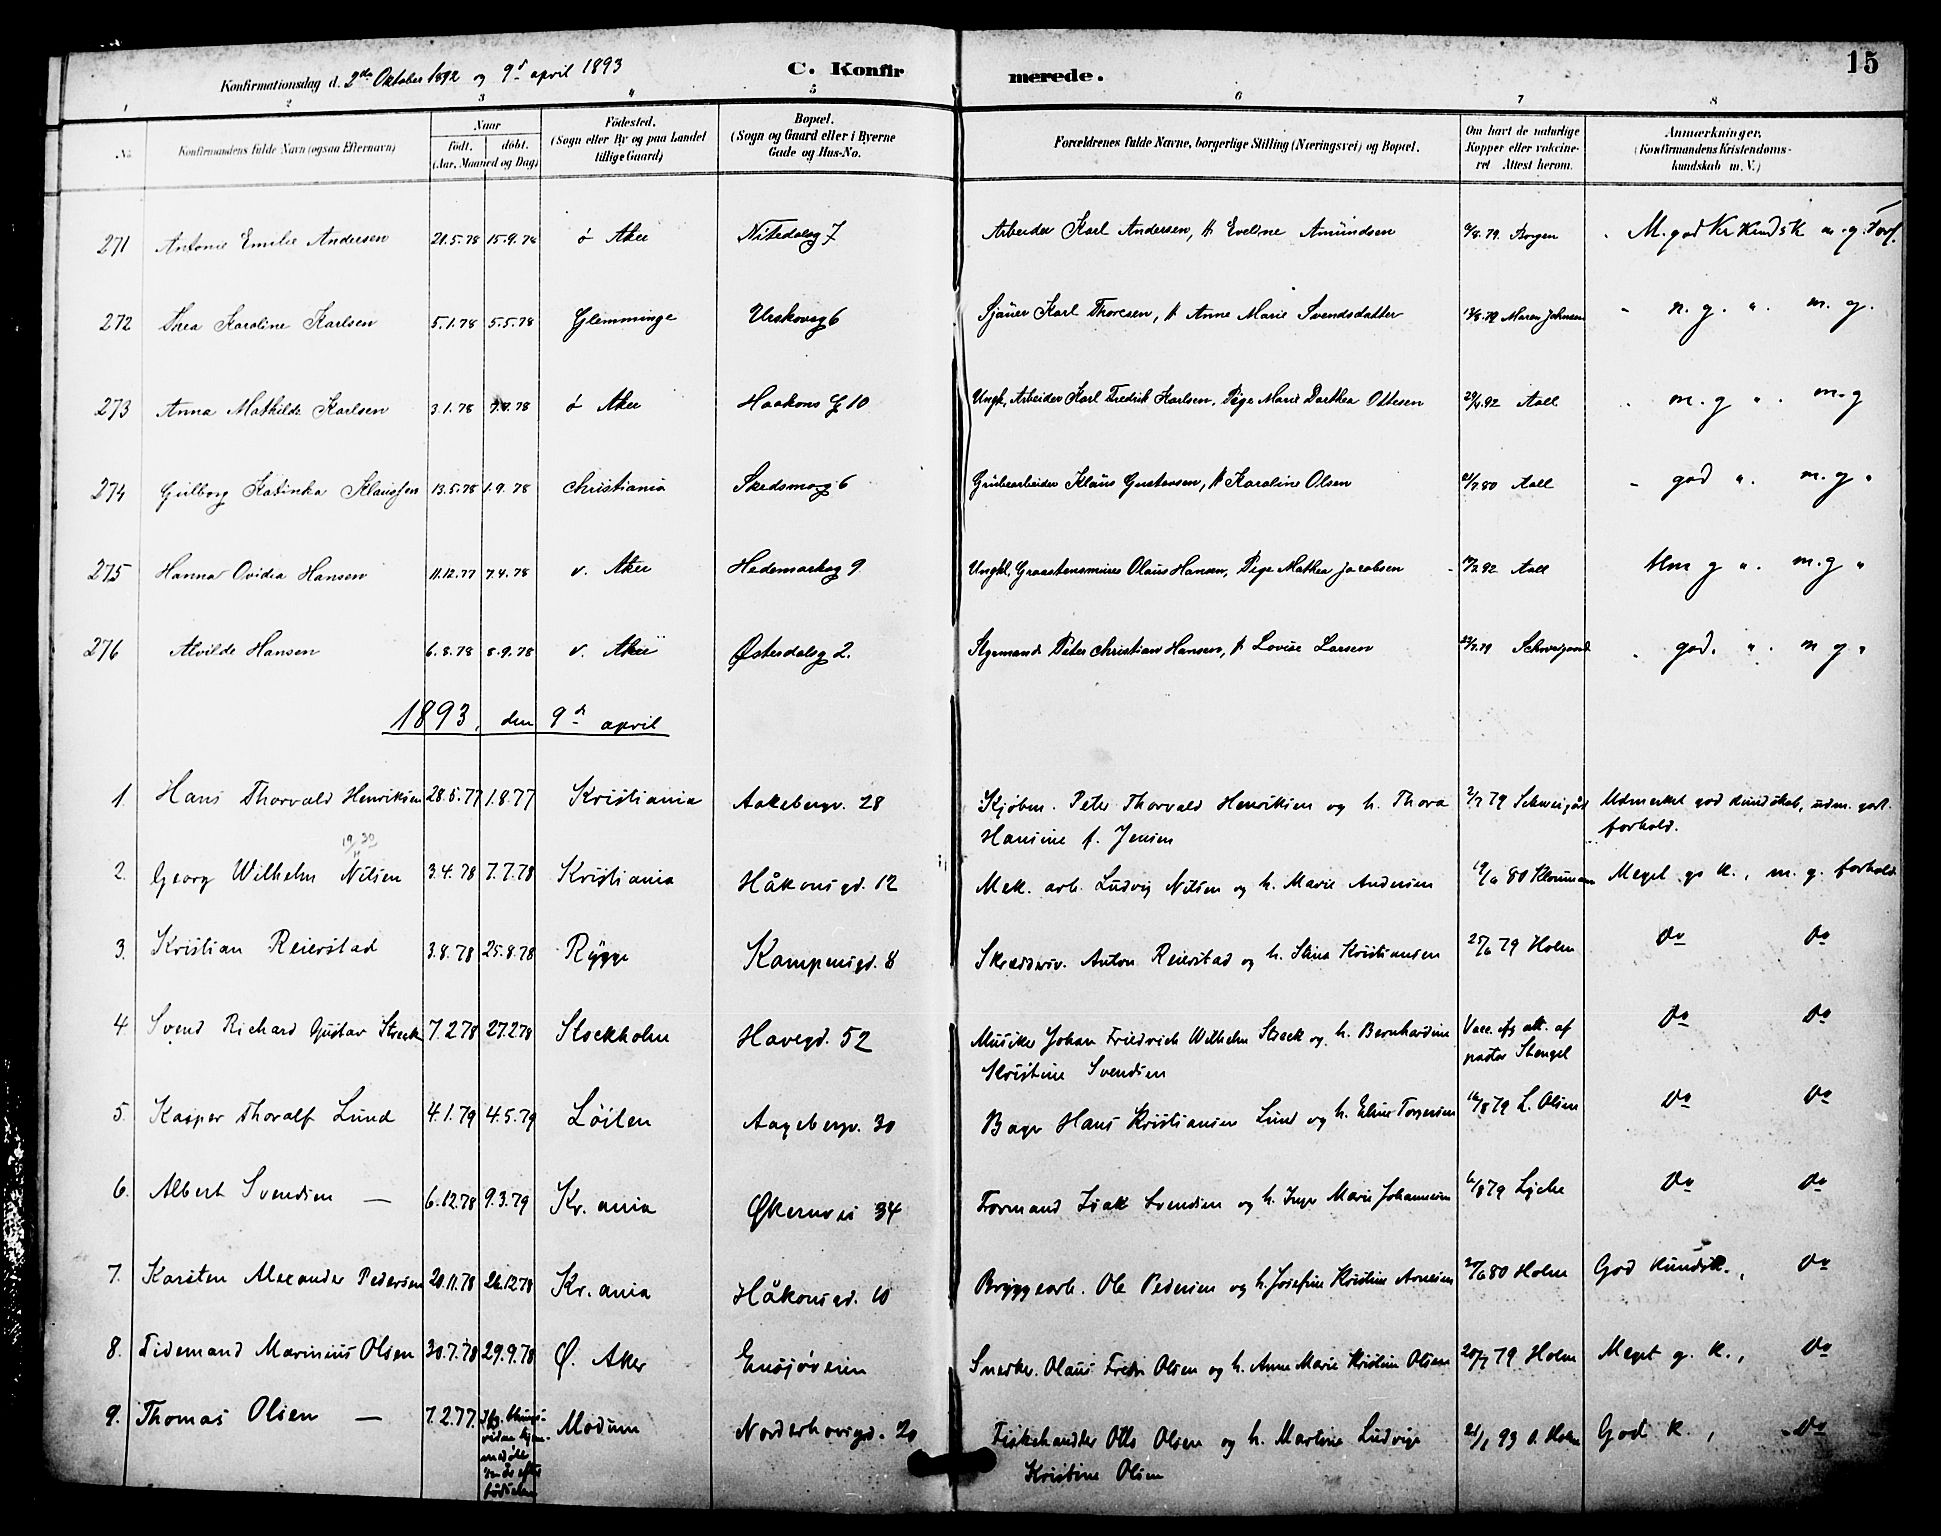 15
Konfirmationsdag d. 2den Oktober 1892 og 9d april 1893 C. Konfirmerede.
1 2 3 4 5 6 7 8
No. Konfirmandens fulde Navn (ogsaa Efternavn) Naar født. døbt. (Aar, Maaned og Dag) Fødested. (Sogn eller By og paa Landet tillige Gaard) Bopæl. (Sogn og Gaard eller i Byerne Gade og Hus-No. Forældrenes fulde Navne, borgerlige Stilling (Næringsvei) og Bopæl. Om havt de naturlige Kopper eller vakcineret Attest herom. Anmærkninger. (Konfirmandens Kristendomskundskab m. V.)
271 Antonie Emilie Andersen 21.5.78 15.9.78 ø Aker Nitedalsg 7 Arbeider Karl Andersen, H. Eveline Amundsen 79. Borgen M. god Kr Kundsk m. g. Forh.
272 Thea Karoline Karlsen 5.1.78 5.5.78 Glemminge Urskovsg 6 Sjauer Karl Thoresen, H Anne Marie Svendsdatter 79 Maren Johnsen " n. g. ". m. g.
273 Anna Mathilde Karlsen 3.1.78 ø Aker Haakons G 10 Ungk. Arbeider Karl Fredrik Karlsen, Pige Marie Dorthea Ottesen 92 Aall " m. g ". m. g
274 Gulborg Katinka Klaussen 13.5.78 1.9.78 Christiania Skedsmog 6 Grubearbeider Klaus Gustavsen, H Karoline Olsen 80 Aall " god ". m. g "
275 Hanna Ovidia Hansen 11.12.77 7.4.78 v. Aker Hedemarksg 9 Ungkl, Graastensmurer Olaus Hansen, Pige Mathea Jacobsen 92 Aall g ". m. g "
276 Alvilde Hansen 6.8.78 8.9.78 v. Aker Østerdalsg 2. Styrmand Peter Christian Hansen, H Lovise Larsen 79 Schweigaard " god. ". m g "
1893, den 9d april
1. Hans Thorvald Henriksen 28.5.77 1.8.77 Kristiania Aakebergv. 28 Kjøbm. Peter Thorvald Henriksen og h. Thora 2/7 79 Schweigård Udmerket god kundskab, udm. godt
Hansine f. Jensen forhold.
2. Georg Wilhelm Nilsen 3.4.78 7.7.78 Kristiania Håkonsgd. 12 Mek. arb. Ludvig Nilsen og h. Marie Andersen 19/6 80 Kloumann Meget go K., m. g. forhold.
3. Kristian Reierstad 3.8.78 25.8.78 Rygge Kampensgd. 8 Skræddersv. Anton Reierstad og h. Stina Kristiansen 25/6 79 Holm Do Do
4. Svend Richard Gustav Streek 7.2.78 27.2.78 Stockholm Havegd. 52 Musiker Johan Friedrich Wilhelm Streek og h. Bernhardine Vacc. ifg att. af Do Do
Kristine Svendsen pastor Stengel
5. Kasper Thoralf Lund 4.1.79 4.5.79 Løiten Aagebergv. 30 Bager Hans Kristiansen Lund og h. Eline Torgersen 16/8 79 L. Olsen Do Do
6. Albert Svendsen — 6.12.78 9.3.79 Kr.ania Økernvei 34 Formand Isak Svendsen og h. Inger Marie Johannesen 6/8 79 Lyche Do Do
7. Karsten Alexander Pedersen 20.11.78 26.12.78 Kr.ania Håkonsgd. 10 Bryggearb. Ole Pedersen og h. Josefine Kristine Arnesen 80 Holm God Kundsk., Do
8. Tidemand Marinius Olsen 30.7.78 29.9.78 Ø. Aker Ensjøveien Snedker. Olaus Fredr Olsen og h. Anne Marie Kristine Olsen 20/7 79 Holm Meget g. K., Do
9. Thomas Olsen — 7.2.77. Modum Norderhovsgd. 20 Fiskehandler Otto Olsen og h. Martine Ludvige 21/1 93 O. Holm God K., Do
Kristine Olsen